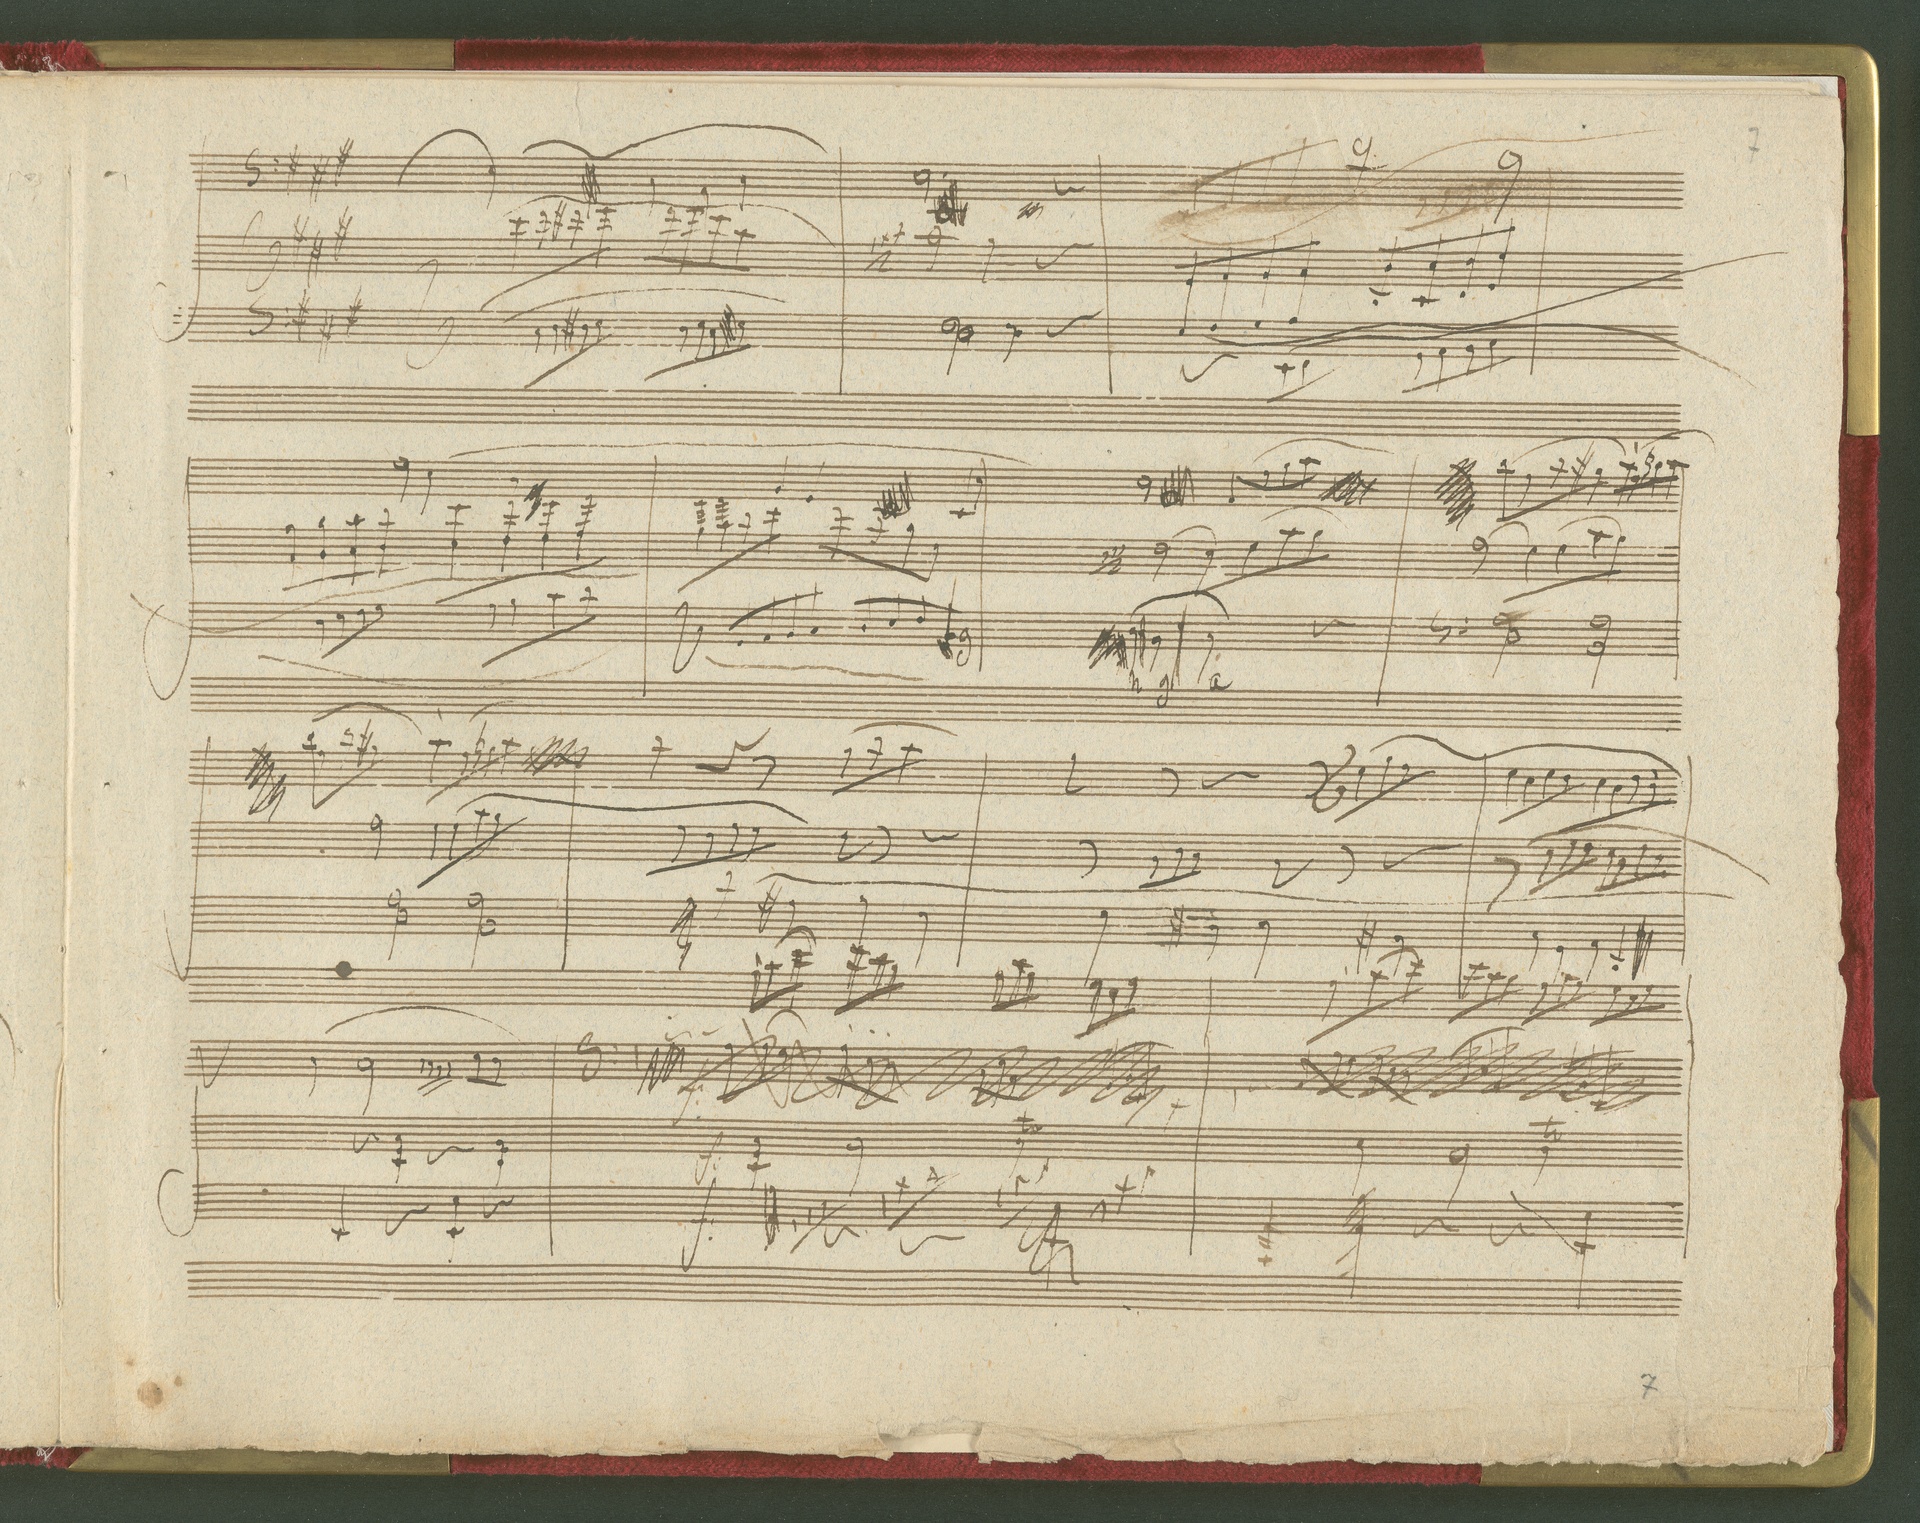 7
h g a
f:
f:
f:
7